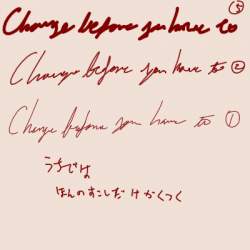 Change before you have to ③
Change before you have to ②
Change before you have to ①
うちでは
ほんのすこしだけかくつく